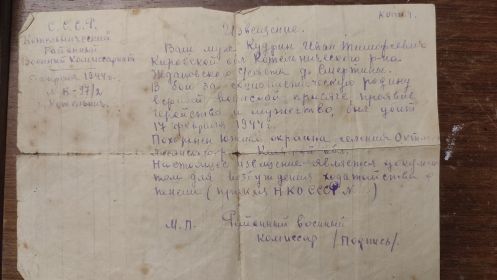 Копия
С.С.С.Р.
Котельнический
Районный
Военный Комиссариат
апреля 1944 г.
Котельнич
Извещение.
Ваш муж Кудрин Иван Тимофеевич
Кировской обл. Котельнического р-на
Ждановского с/совета д. Смертины.
В бою за социалистическую родину
верный воинской присяге, проявив
геройство и мужество, был убит
17 февраля 1944 г.
Похоронен Южная окраина селения
Настоящее извещение является
для возбуждения ходатайства о
пенсии (приказ НКО СССР № )
М.П. Районный военный
комиссар /Подпись/.